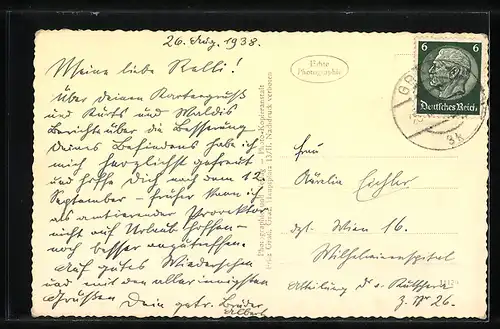 26. Aug. 1938.
Meine liebe Relli!
Über deinen Kartengruß
und Kurts und Waldis
Berichte über die Besserung
Deines Befindens habe ich
mich herzlichst gefreut
und hoffe Dich nach dem 12.
September – früher kann ich
als amtierender Prorektor
nicht auf Urlaub hoffen –
noch besser anzutreffen.
Auf gutes Wiedersehen
und mit den allerinnigsten
Grüßen Dein getr. Bruder
Albert
Echte
Photographie
Photo-Kopieranstalt
Graz, 13/II. Nachdruck verboten
6 6
Deutsches Reich
Frau
Aurelia Eichler
dzt. Wien 16.
Wilhelminenspital
Abteilung d.
Z. Nr 26.